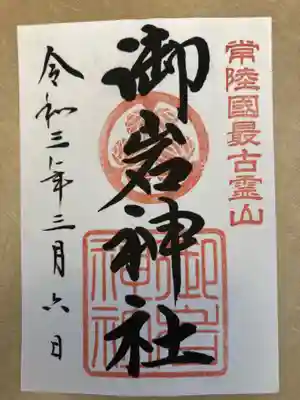 常陸國最古霊山
御岩神社
令和三年三月六日
御岩
神社